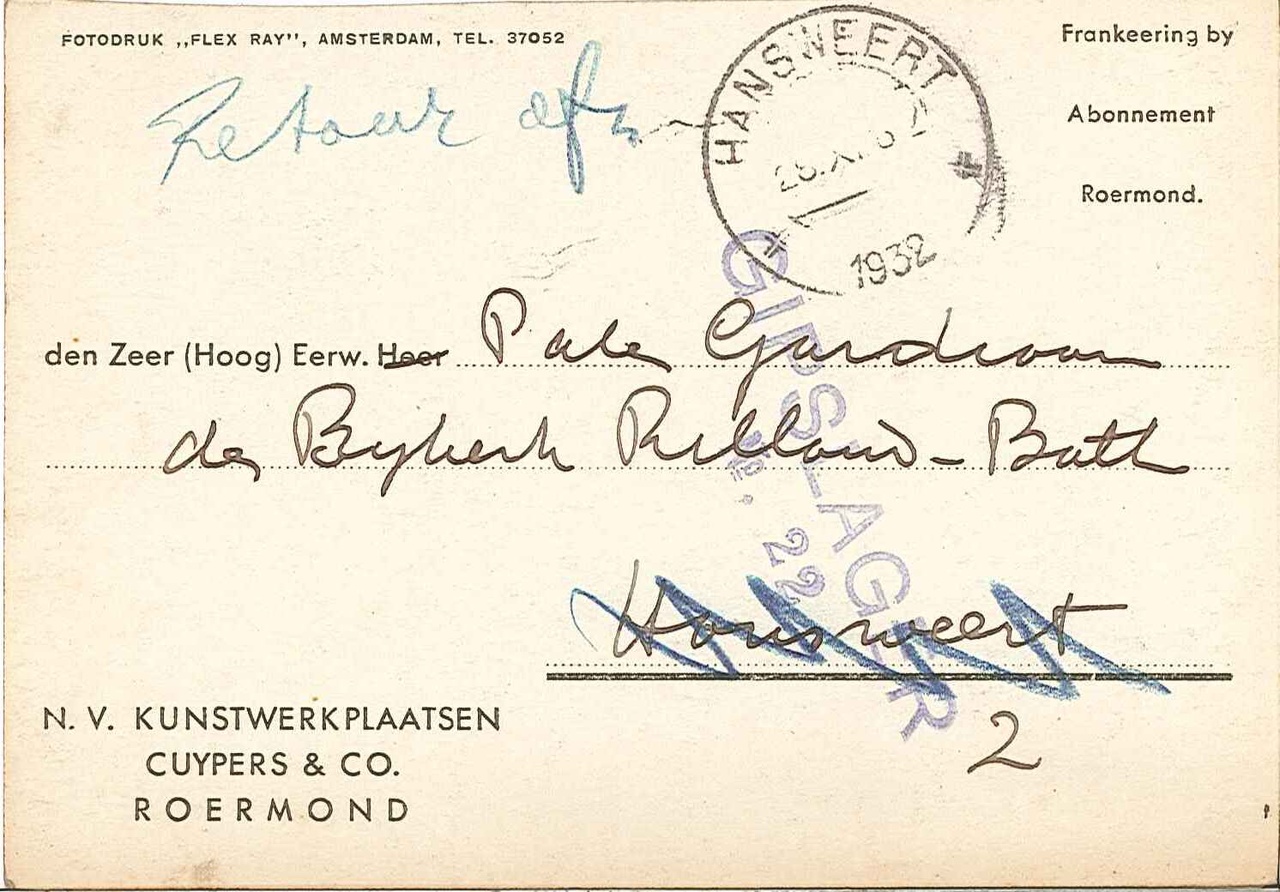 FOTODRUK „FLEX RAY”, AMSTERDAM, TEL. 37052
Frankeering by
Abonnement
Roermond.
Retour afz
HANSWEERT
1932
den Zeer (Hoog) Eerw. Heer Pater Gardiaan
der Bykerk Rilland-Bath
Hansweert
2
GIPSLAGER
22
N. V. KUNSTWERKPLAATSEN
CUYPERS & CO.
ROERMOND